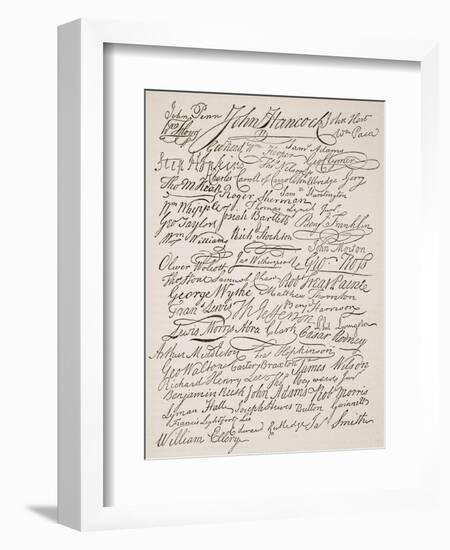 John Penn John Hancock John Hart
Wm Floyd Wm Paca
Geo Read Wm Hooper Saml Adams
Step Hopkins Thos Nelson Jr Geo Clymer
Charles Carroll of Carrollton Elbridge Gerry
Tho M:Kean Roger Sherman Saml Huntington
Wm Whipple Thomas Lynch Junr
Geo Taylor Josiah Bartlett Benj Franklin
Wm Williams Richd Stockton
John Morton
Oliver Wolcott Jno Witherspoon Geo Ross
Thos Stone Samuel Chase Robt Treat Paine
George Wythe Matthew Thornton
Frans Lewis Th Jefferson Benj Harrison
Lewis Morris Abra Clark Phil Livingston
Caesar Rodney
Arthur Middleton Fras Hopkinson
Geo Walton Carter Braxton James Wilson
Richard Henry Lee Thos Heyward Junr
Benjamin Rush John Adams Robt Morris
Lyman Hall Joseph Hewes Button Gwinnett
Francis Lightfoot Lee
William Ellery Edward Rutledge Jas Smith